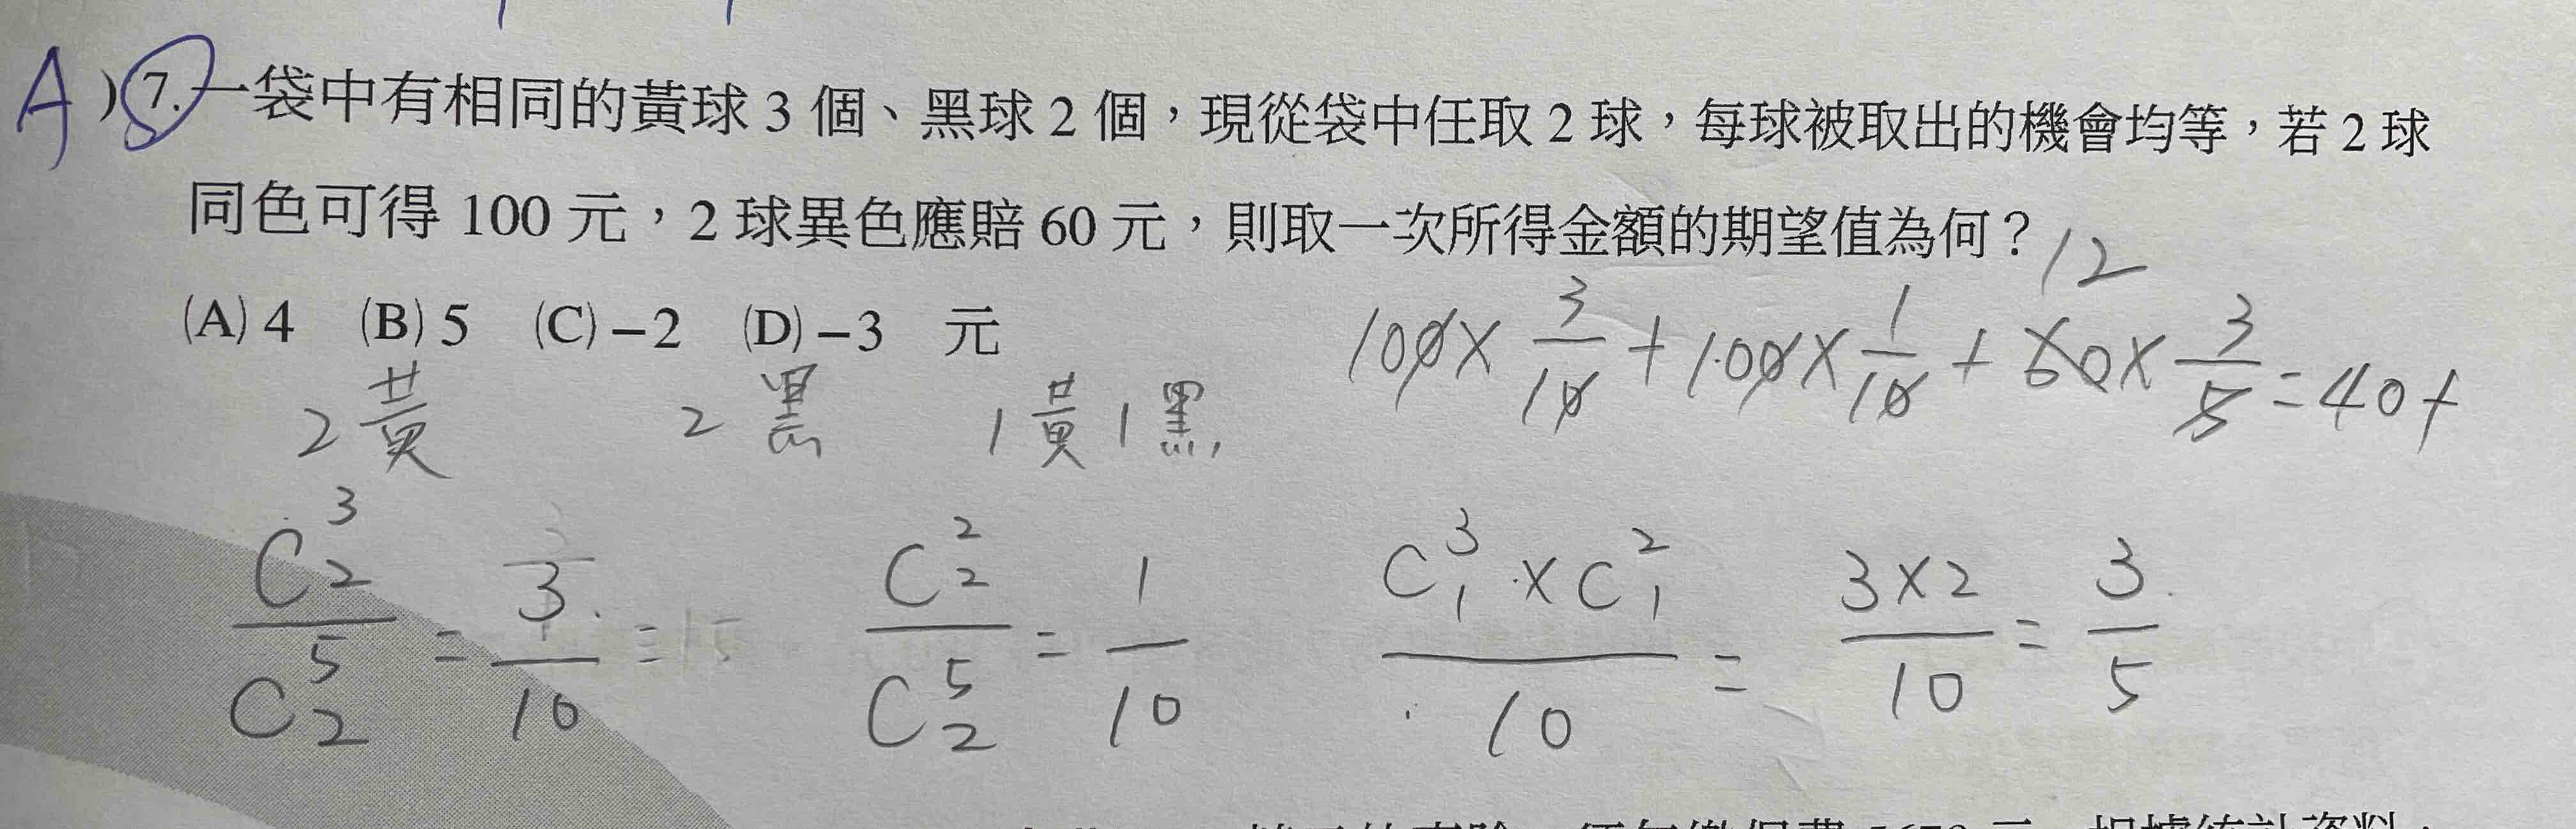 A )7.一袋中有相同的黃球 3 個、黑球 2 個，現從袋中任取 2 球，每球被取出的機會均等，若 2 球
同色可得 100 元，2 球異色應賠 60 元，則取一次所得金額的期望值為何？
(A) 4 (B) 5 (C) −2 (D) −3 元
12
100× 3/10 + 100× 1/10 + 60× 3/5 = 40+
2黃 2黑 1黃1黑
C³₂/C⁵₂ = 3/10 C²₂/C⁵₂ = 1/10 C³₁×C²₁/10 = 3×2/10 = 3/5